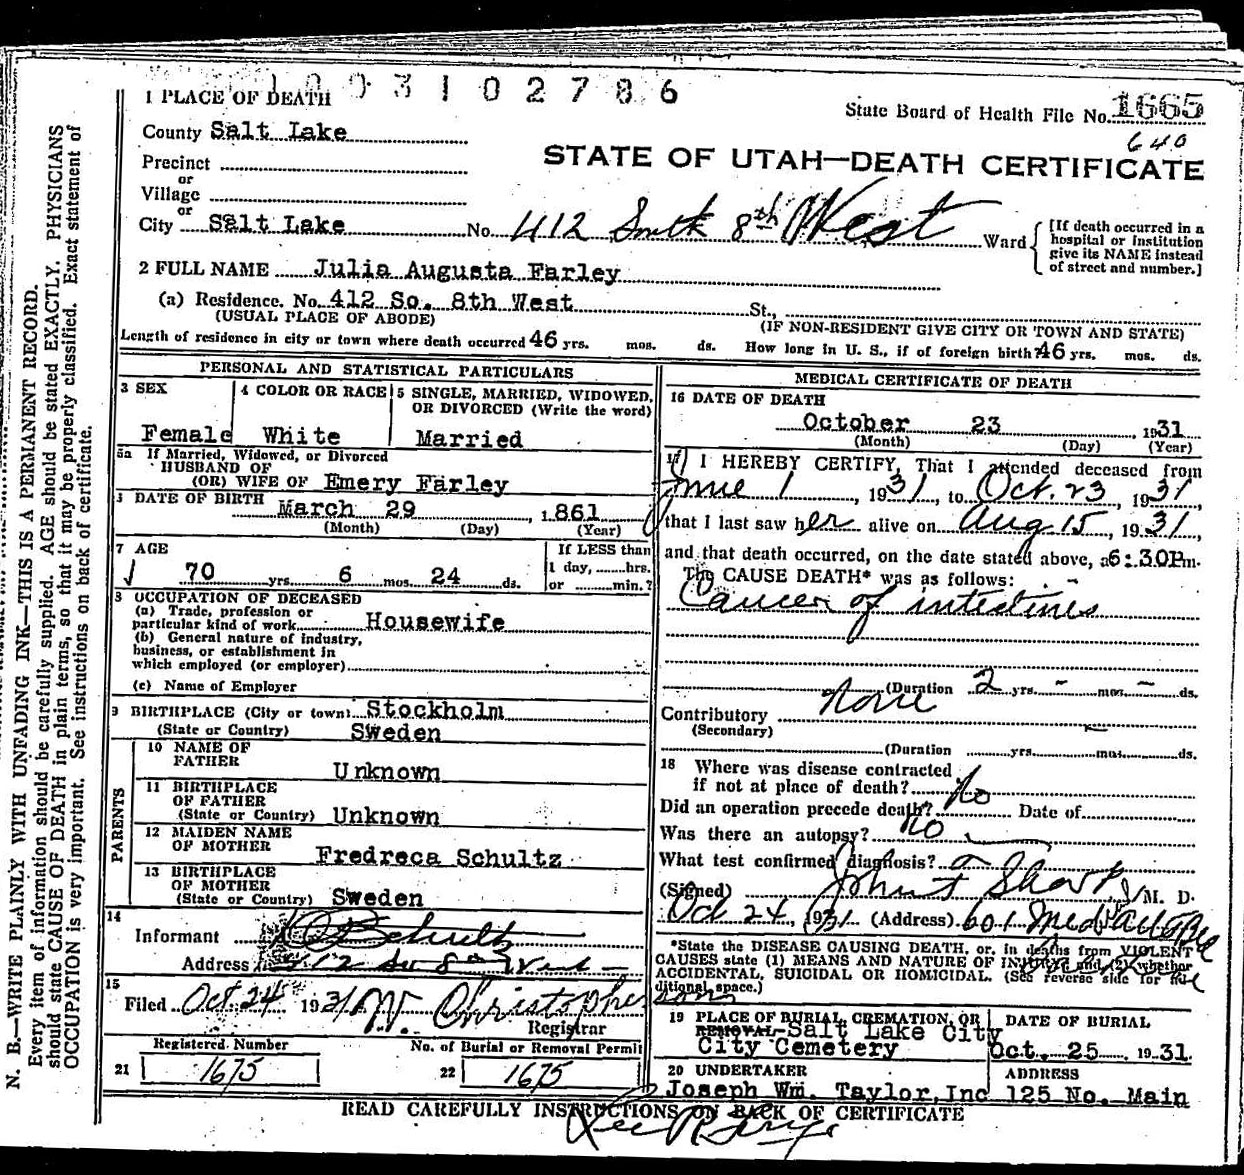 1003102786
State Board of Health File No. 1665
640
STATE OF UTAH—DEATH CERTIFICATE
1 PLACE OF DEATH
County Salt Lake
Precinct
or
Village
or
City Salt Lake No. 412 South 8th West Ward [If death occurred in a hospital or institution give its NAME instead of street and number.]
2 FULL NAME Julia Augusta Farley
(a) Residence. No. 412 So. 8th West St.,
(USUAL PLACE OF ABODE) (IF NON-RESIDENT GIVE CITY OR TOWN AND STATE)
Length of residence in city or town where death occurred 46 yrs. mos. ds. How long in U. S., if of foreign birth? 46 yrs. mos. ds.
PERSONAL AND STATISTICAL PARTICULARS
3 SEX
Female
4 COLOR OR RACE
White
5 SINGLE, MARRIED, WIDOWED,
OR DIVORCED (Write the word)
Married
5a If Married, Widowed, or Divorced
HUSBAND OF
(OR) WIFE OF Emery Farley
DATE OF BIRTH March 29, 1861
(Month) (Day) (Year)
7 AGE
70 yrs. 6 mos. 24 ds.
If LESS than
1 day, hrs.
or min.?
8 OCCUPATION OF DECEASED
(a) Trade, profession or
particular kind of work Housewife
(b) General nature of industry,
business, or establishment in
which employed (or employer)
(c) Name of Employer
9 BIRTHPLACE (City or town) Stockholm
(State or Country) Sweden
PARENTS
10 NAME OF
FATHER Unknown
11 BIRTHPLACE
OF FATHER
(State or Country) Unknown
12 MAIDEN NAME
OF MOTHER Fredreca Schultz
13 BIRTHPLACE
OF MOTHER
(State or Country) Sweden
14
Informant Schultz
Address 412 So 8th West
15
Filed Oct 24 1931 W. Christophersons
Registrar
Registered Number
21 1675
No. of Burial or Removal Permit
22 1675
MEDICAL CERTIFICATE OF DEATH
16 DATE OF DEATH
October 23, 1931
(Month) (Day) (Year)
17 I HEREBY CERTIFY, That I attended deceased from
June 1, 1931, to Oct. 23, 1931
that I last saw her alive on Aug 15, 1931,
and that death occurred, on the date stated above, a 6:30Pm.
The CAUSE DEATH* was as follows:
Cancer of intestines
(Duration 2 yrs. - mos. - ds.
Contributory None
(Secondary)
(Duration yrs. mos. ds.
18 Where was disease contracted
if not at place of death? No
Did an operation precede death? Date of
Was there an autopsy? No
What test confirmed diagnosis?
(Signed) John F Sharp, M. D.
Oct 24, 1931 (Address) 601 Med Arts
*State the DISEASE CAUSING DEATH, or, in deaths from VIOLENT
CAUSES state (1) MEANS AND NATURE OF INJURY; and (2) whether
ACCIDENTAL, SUICIDAL OR HOMICIDAL. (See reverse side for additional space.)
19 PLACE OF BURIAL, CREMATION, OR
REMOVAL Salt Lake City
City Cemetery
DATE OF BURIAL
Oct. 25 1931.
20 UNDERTAKER
Joseph Wm. Taylor, Inc
ADDRESS
125 No. Main
READ CAREFULLY INSTRUCTIONS ON BACK OF CERTIFICATE
N. B.—WRITE PLAINLY WITH UNFADING INK—THIS IS A PERMANENT RECORD.
Every item of information should be carefully supplied. AGE should be stated EXACTLY. PHYSICIANS
should state CAUSE OF DEATH in plain terms, so that it may be properly classified. Exact statement of
OCCUPATION is very important. See instructions on back of certificate.